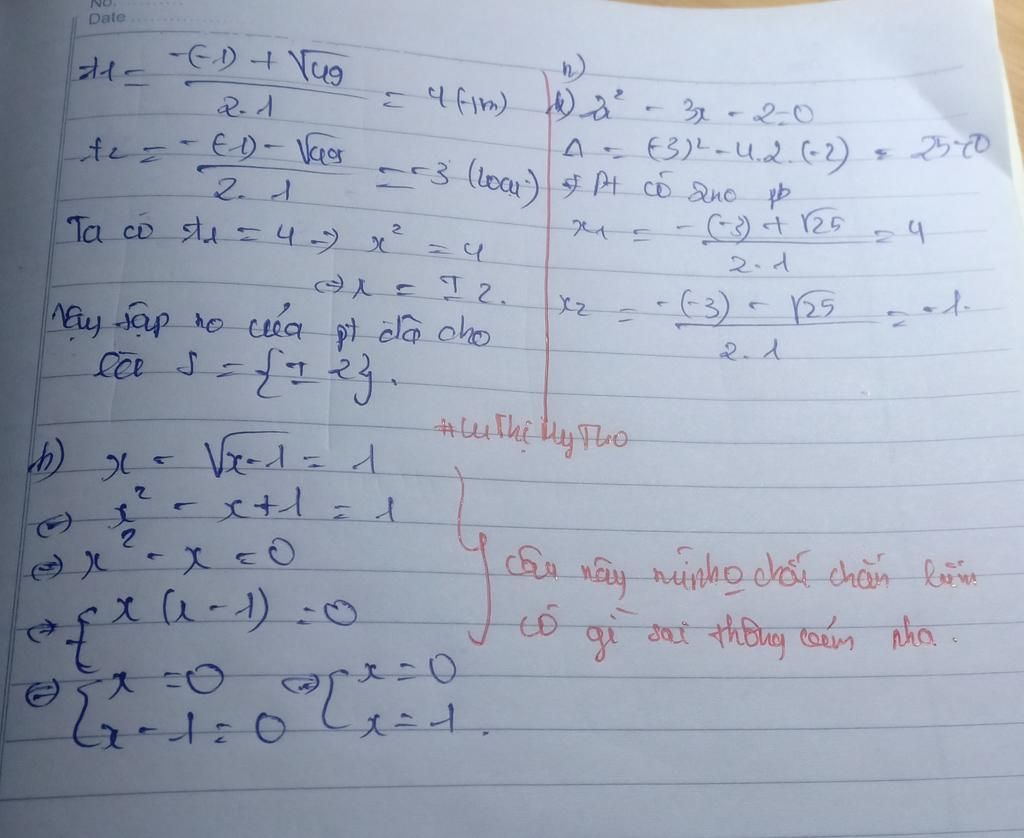 No.
Date
t1 = \frac{-(-1) + \sqrt{49}}{2.1} = 4 (tm)
t2 = \frac{-(-1) - \sqrt{49}}{2.1} = -3 (loại)
Ta có t1 = 4 => x² = 4
<=> x = ± 2.
Vậy tập no của pt đã cho
là S = {± 2}.
h) x - \sqrt{x-1} = 1
<=> x² - x + 1 = 1
<=> x² - x = 0
<=> { x (x - 1) = 0
<=> { x = 0 <=> { x = 0
x - 1 = 0 x = 1.
n)
2² - 3x - 2 = 0
Δ = (-3)² - 4.2.(-2) = 25 > 0
=> Pt có 2no pb
x1 = \frac{-(-3) + \sqrt{25}}{2.1} = 4
x2 = \frac{-(-3) - \sqrt{25}}{2.1} = -1.
câu này mình o chắc chắn lắm
có gì sai thông cảm nha.